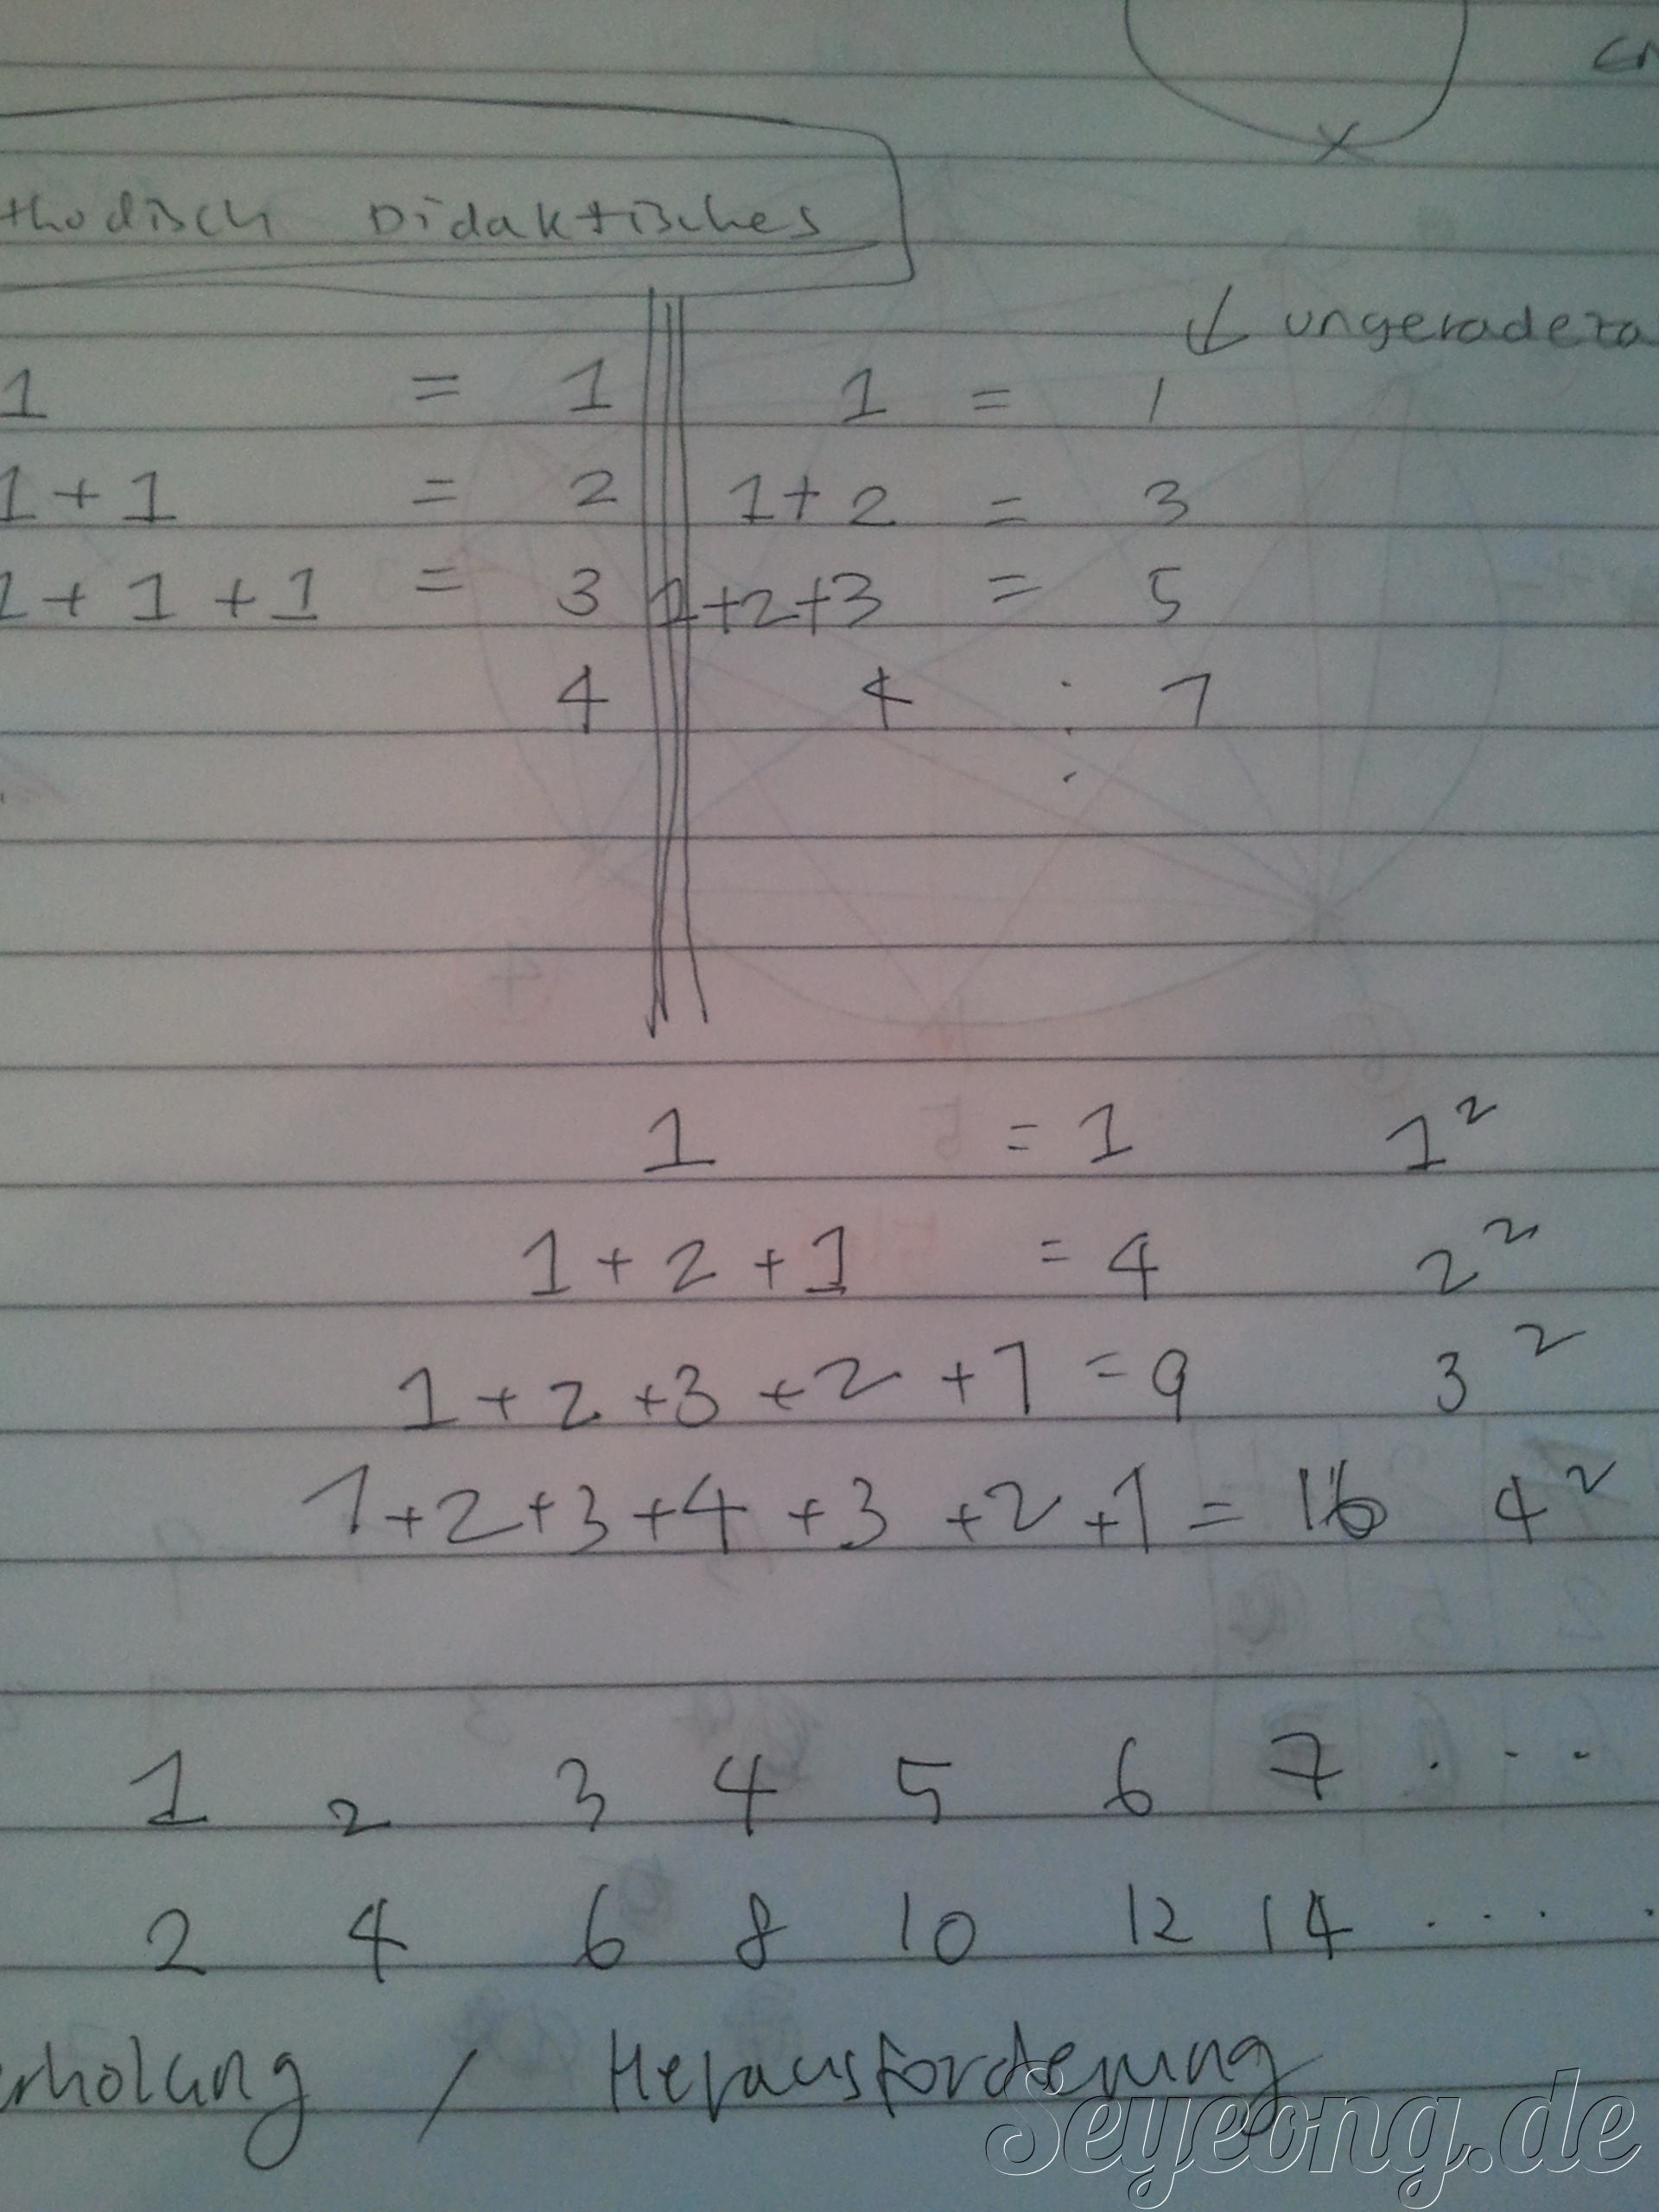 thodisch Didaktisches
↓ ungeradeza
1 = 1 1 = 1
1+1 = 2 1+2 = 3
1+1+1 = 3 1+2+3 = 5
4 4 : 7
1 = 1 1²
1+2+1 = 4 2²
1+2+3+2+1 = 9 3²
1+2+3+4+3+2+1 = 16 4²
1 2 3 4 5 6 7 . . .
2 4 6 8 10 12 14 . . . .
erholung / Herausforderung
Seyeong.de